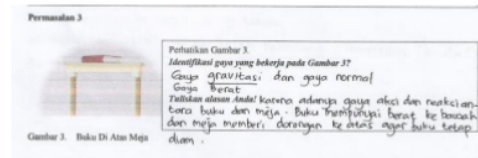 Permasalan 3
Perhatikan Gambar 3.
Identifikasi gaya yang bekerja pada Gambar 3?
Gaya gravitasi dan gaya normal
Gaya Berat
Tuliskan alasan Anda! Karena adanya gaya aksi dan reaksi an-
tara buku dan meja. Buku mempunyai berat ke bawah
dan meja memberi dorongan ke atas agar buku tetap
diam.
Gambar 3. Buku Di Atas Meja